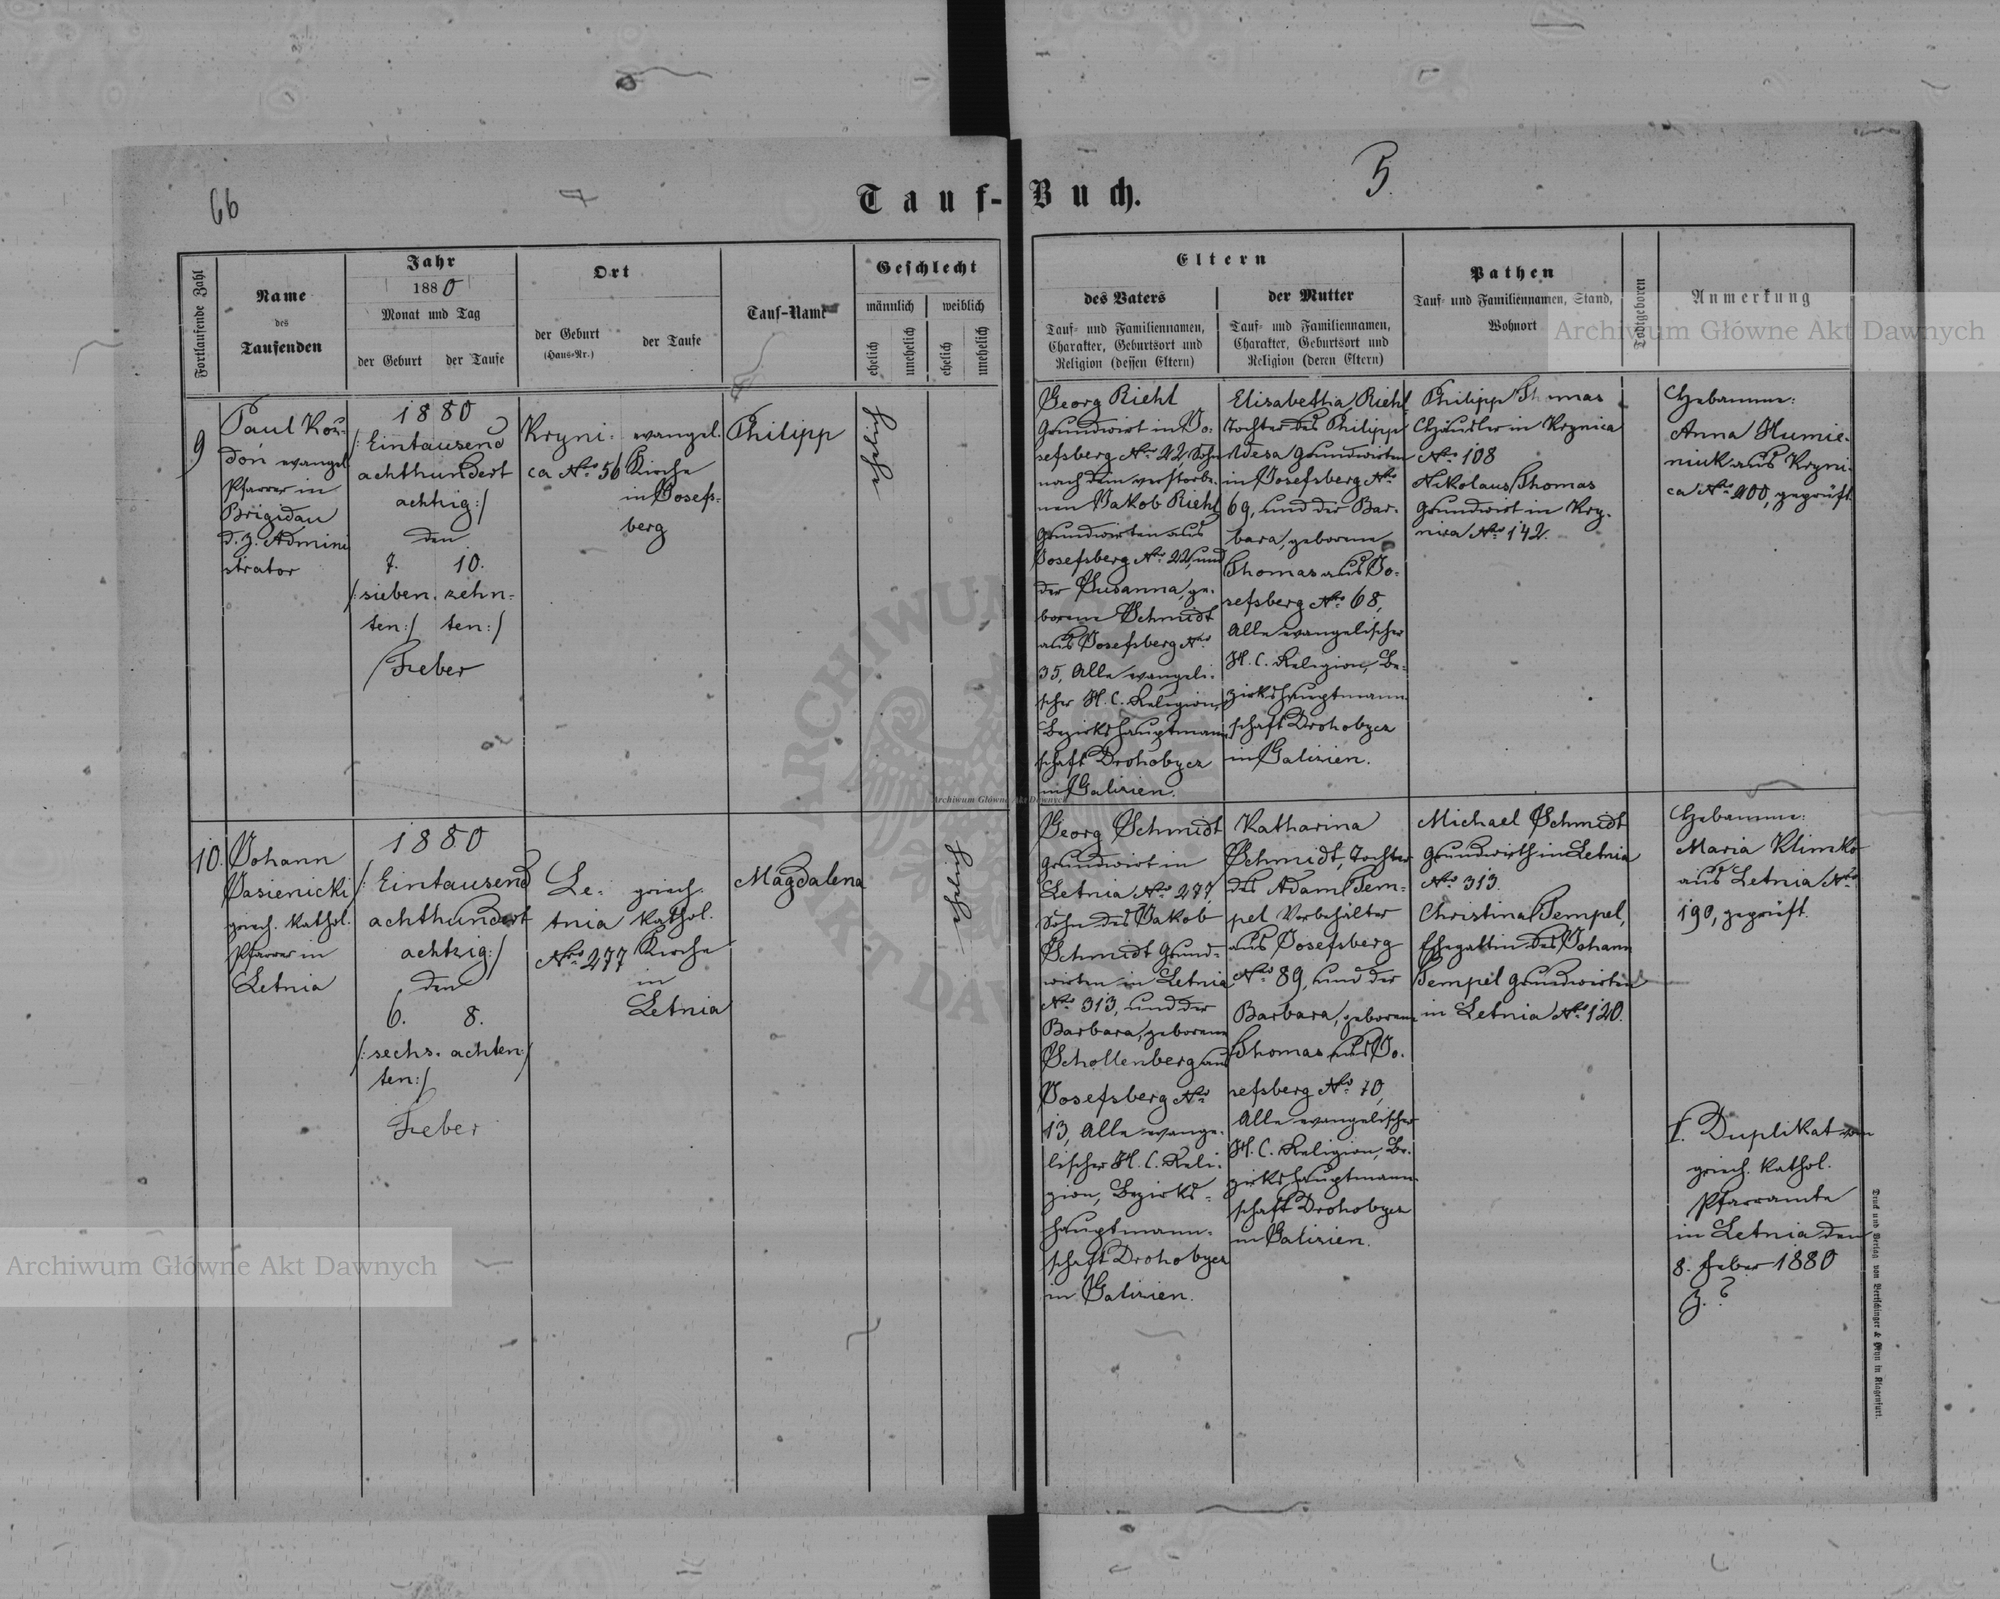 66
5.
Tauf-Buch.
Fortlaufende Zahl
Name
des
Taufenden
Jahr
1880
Monat und Tag
der Geburt
der Taufe
Ort
der Geburt
(Haus-Nr.)
der Taufe
Tauf-Name
Geschlecht
männlich
weiblich
ehelich
unehelich
ehelich
unehelich
Eltern
des Vaters
Tauf- und Familiennamen,
Charakter, Geburtsort und
Religion (dessen Eltern)
der Mutter
Tauf- und Familiennamen,
Charakter, Geburtsort und
Religion (deren Eltern)
Pathen
Tauf- und Familiennamen, Stand,
Wohnort
Todtgeboren
Anmerkung
9
Paul Kou-
don evangel.
Pfarrer in
Brigidau
d. z. Admini
strator
1880
/: Eintausend
achthundert
achtzig :/
den
7. 10.
/: sieben- zehn-
ten :/ ten :/
Feber
Kryni-
ca Nro 56
evangel.
Kirche
in Josefs-
berg
Philipp
Georg Riehl
Grundwirt in Jo-
sefsberg Nro 22, Sohn
nach dem verstorbe-
nen Jakob Riehl
Grundwirten aus
Josefsberg Nro 22, und
der Susanna, ge-
borene Schmidt
aus Josefsberg Nro
35, Alle evangeli-
scher H. C. Religion,
Bezirkshauptmann
schaft Drohobycz
in Galizien.
Elisabetha Riehl
Tochter des Philipp
Grundwirten
in Josefsberg Nro
69, und der Bar-
bara, geborene
Thomas aus Jo-
sefsberg Nro 68,
Alle evangelischer
H. C. Religion, Be-
zirkshauptmann
schaft Drohobycz
in Galizien.
Philipp Thomas
Häusler in Krynica
Nro 108
Nikolaus Thomas
Grundwirt in Kry-
nica Nro 142.
Hebamme:
Anna Humie-
niuk aus Kryni-
ca Nro 200, geprüft.
10.
Johann
Jasienicki
griech. kathol.
Pfarrer in
Letnia
1880
/: Eintausend
achthundert
achtzig :/
den
6. 8.
/: sechs- achten :/
ten :/
Feber
Le-
tnia
Nro 277
griech.
kathol.
Kirche
in
Letnia
Magdalena
Georg Schmidt
Grundwirt in
Letnia Nro 277,
Sohn des Jakob
Schmidt Grund-
wirten in Letnia
Nro 313, und der
Barbara, geborene
Schollenberg aus
Josefsberg Nro
13, Alle evange-
lischer H. C. Reli-
gion, Bezirks-
hauptmann-
schaft Drohobycz
in Galizien.
Katharina
Schmidt, Tochter
des Adam Tem-
pel Vorbehälter
aus Josefsberg
Nro 89, und der
Barbara, geborene
Thomas aus Jo-
sefsberg Nro 70,
Alle evangelischer
H. C. Religion, Be-
zirkshauptmann-
schaft Drohobycz
in Galizien.
Michael Schmidt
Grundwirth in Letnia
Nro 313.
Christina Tempel,
Ehegattin des Johann
Tempel Grundwirten
in Letnia Nro 120.
Hebamme:
Maria Klimko
aus Letnia Nro
190, geprüft.
f. Duplikat vom
griech. kathol.
Pfarramte
in Letnia den
8. Feber 1880
Z. ?
Druck und Verlag von Bertschinger & Heyn in Klagenfurt.
Archiwum Główne Akt Dawnych
Archiwum Główne Akt Dawnych
Archiwum Główne Akt Dawnych